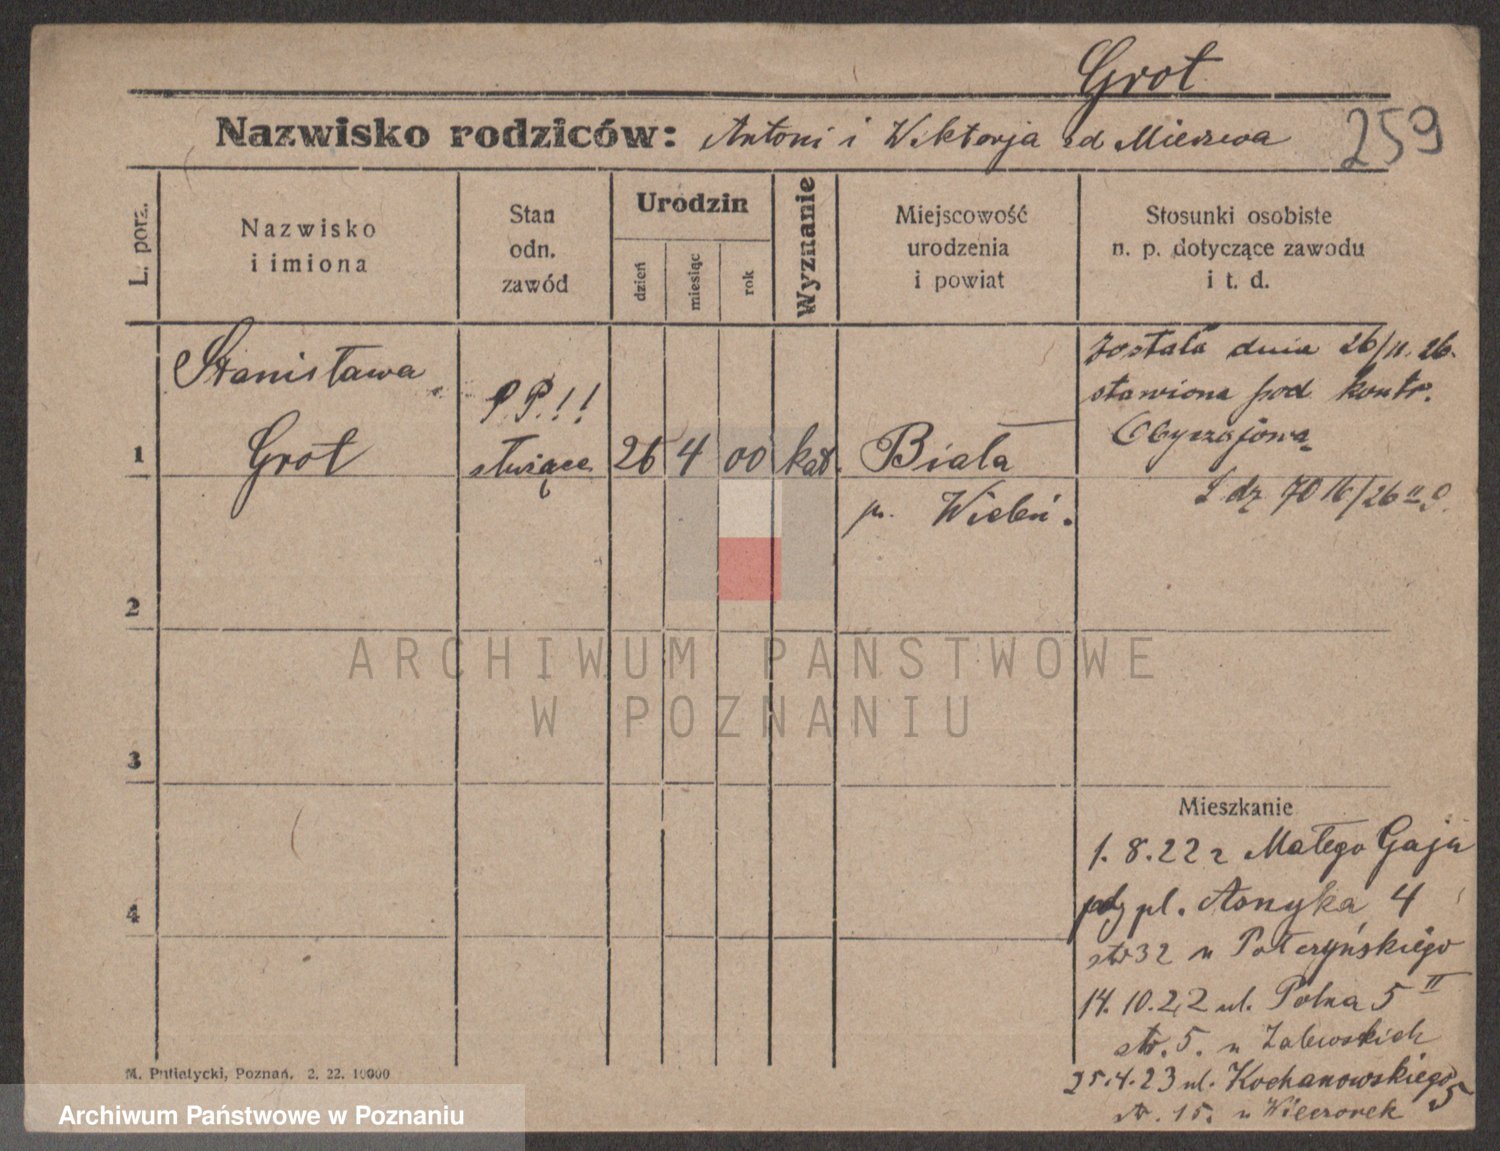 Grot
Nazwisko rodziców: Antoni i Wiktorja zd Mierzwa
259
L. porz.
Nazwisko
i imiona
Stan
odn.
zawód
Urodzin
dzień
miesiąc
rok
Wyznanie
Miejscowość
urodzenia
i powiat
Stosunki osobiste
n. p. dotyczące zawodu
i t. d.
1
Stanisława
Grot
P.P.!!
służąca
26 4 00 kat.
Biała
p. Wieluń.
Została dnia 26/II. 26.
stawiona pod kontr.
Obyczajową
L dz 70 16/26 II
2
3
4
Mieszkanie
1. 8. 22 z Małego Gaju
pl. Asnyka 4
str 32 u Potczyńskiego
14. 10. 22 ul. Polna 5 II
str. 5. u Zalewskich
25. 4. 23 ul. Kochanowskiego 5
str. 15. u Wieczorek
M. Putiatycki, Poznań. 2. 22. 10000
ARCHIWUM PAŃSTWOWE
W POZNANIU
Archiwum Państwowe w Poznaniu